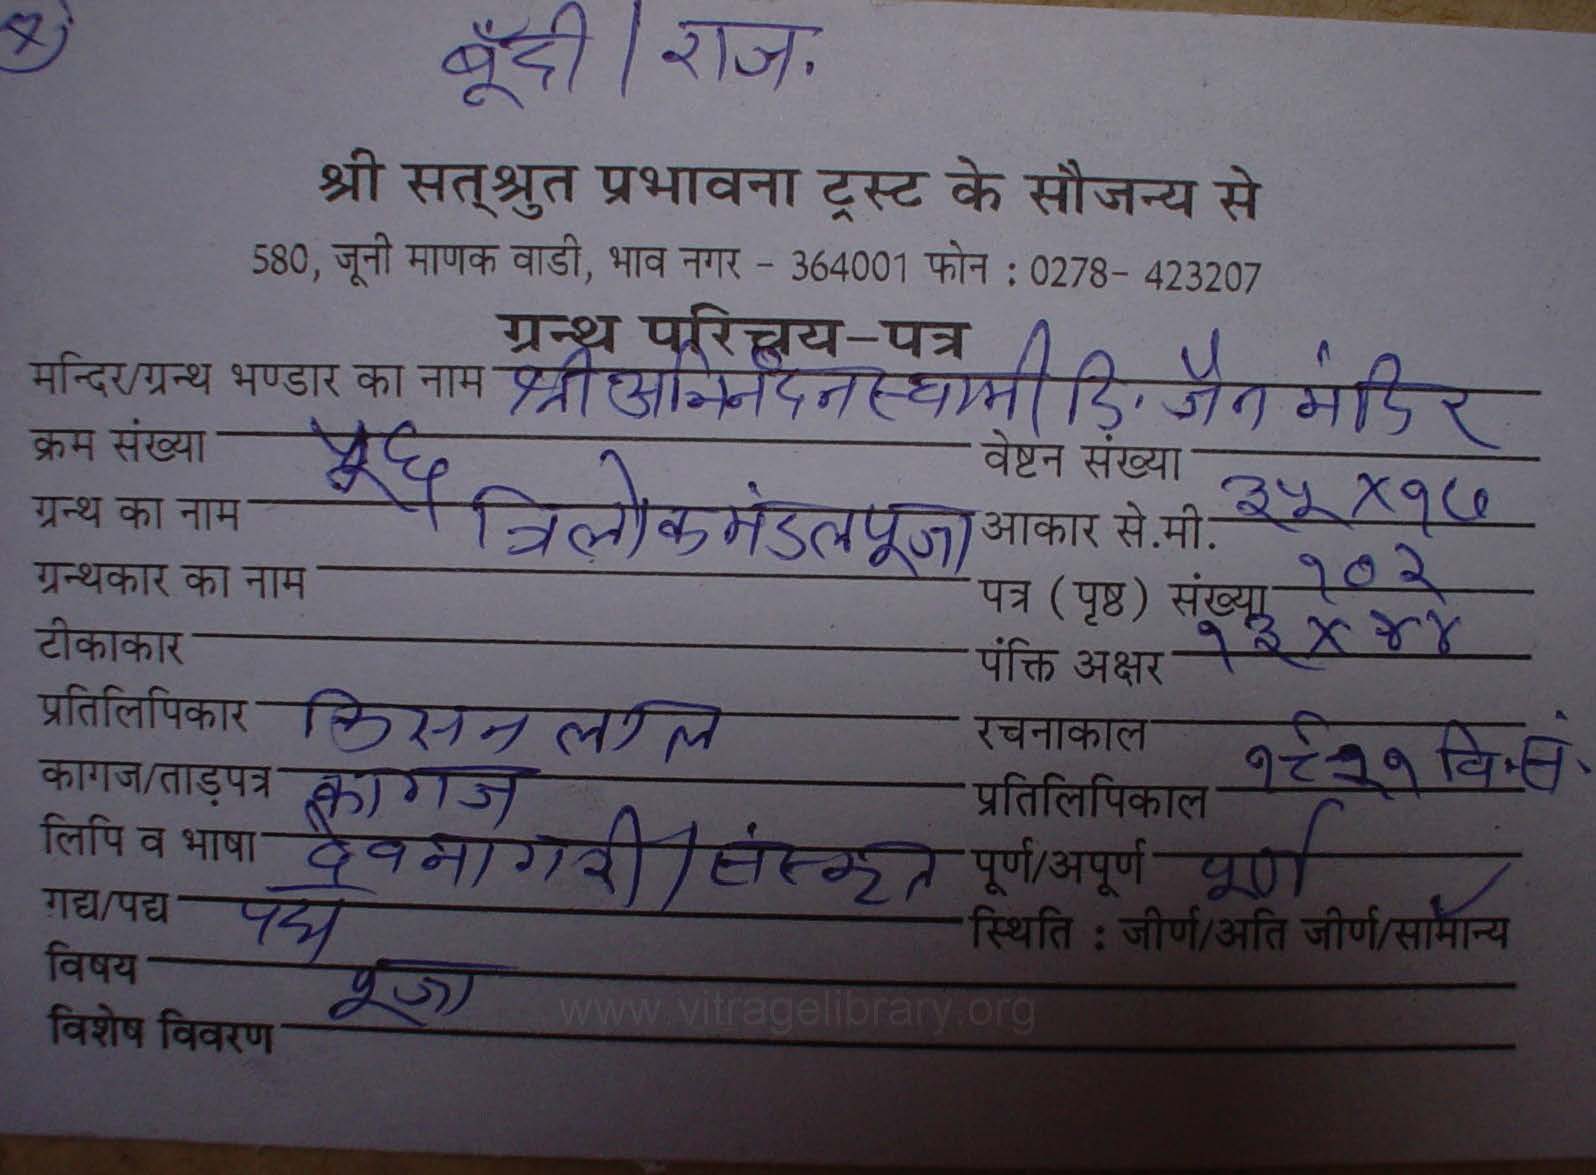 बूँदी / राज.
श्री सत्श्रुत प्रभावना ट्रस्ट के सौजन्य से
580, जूनी माणक वाडी, भाव नगर - 364001 फोन : 0278- 423207
ग्रन्थ परिचय-पत्र
मन्दिर/ग्रन्थ भण्डार का नाम श्री अभिनंदनस्वामी दि. जैन मंदिर
क्रम संख्या
वेष्टन संख्या
ग्रन्थ का नाम त्रिलोकमंडलपूजा
आकार से.मी. ३५ X १७
ग्रन्थकार का नाम
पत्र (पृष्ठ) संख्या १०२
टीकाकार
पंक्ति अक्षर १३ X ४४
प्रतिलिपिकार किसन लाल
रचनाकाल
कागज/ताड़पत्र कागज
प्रतिलिपिकाल वि.सं.
लिपि व भाषा देवनागरी / संस्कृत
पूर्ण/अपूर्ण पूर्ण
गद्य/पद्य पद्य
स्थिति : जीर्ण/अति जीर्ण/सामान्य
विषय पूजा
विशेष विवरण
www.vitragelibrary.org